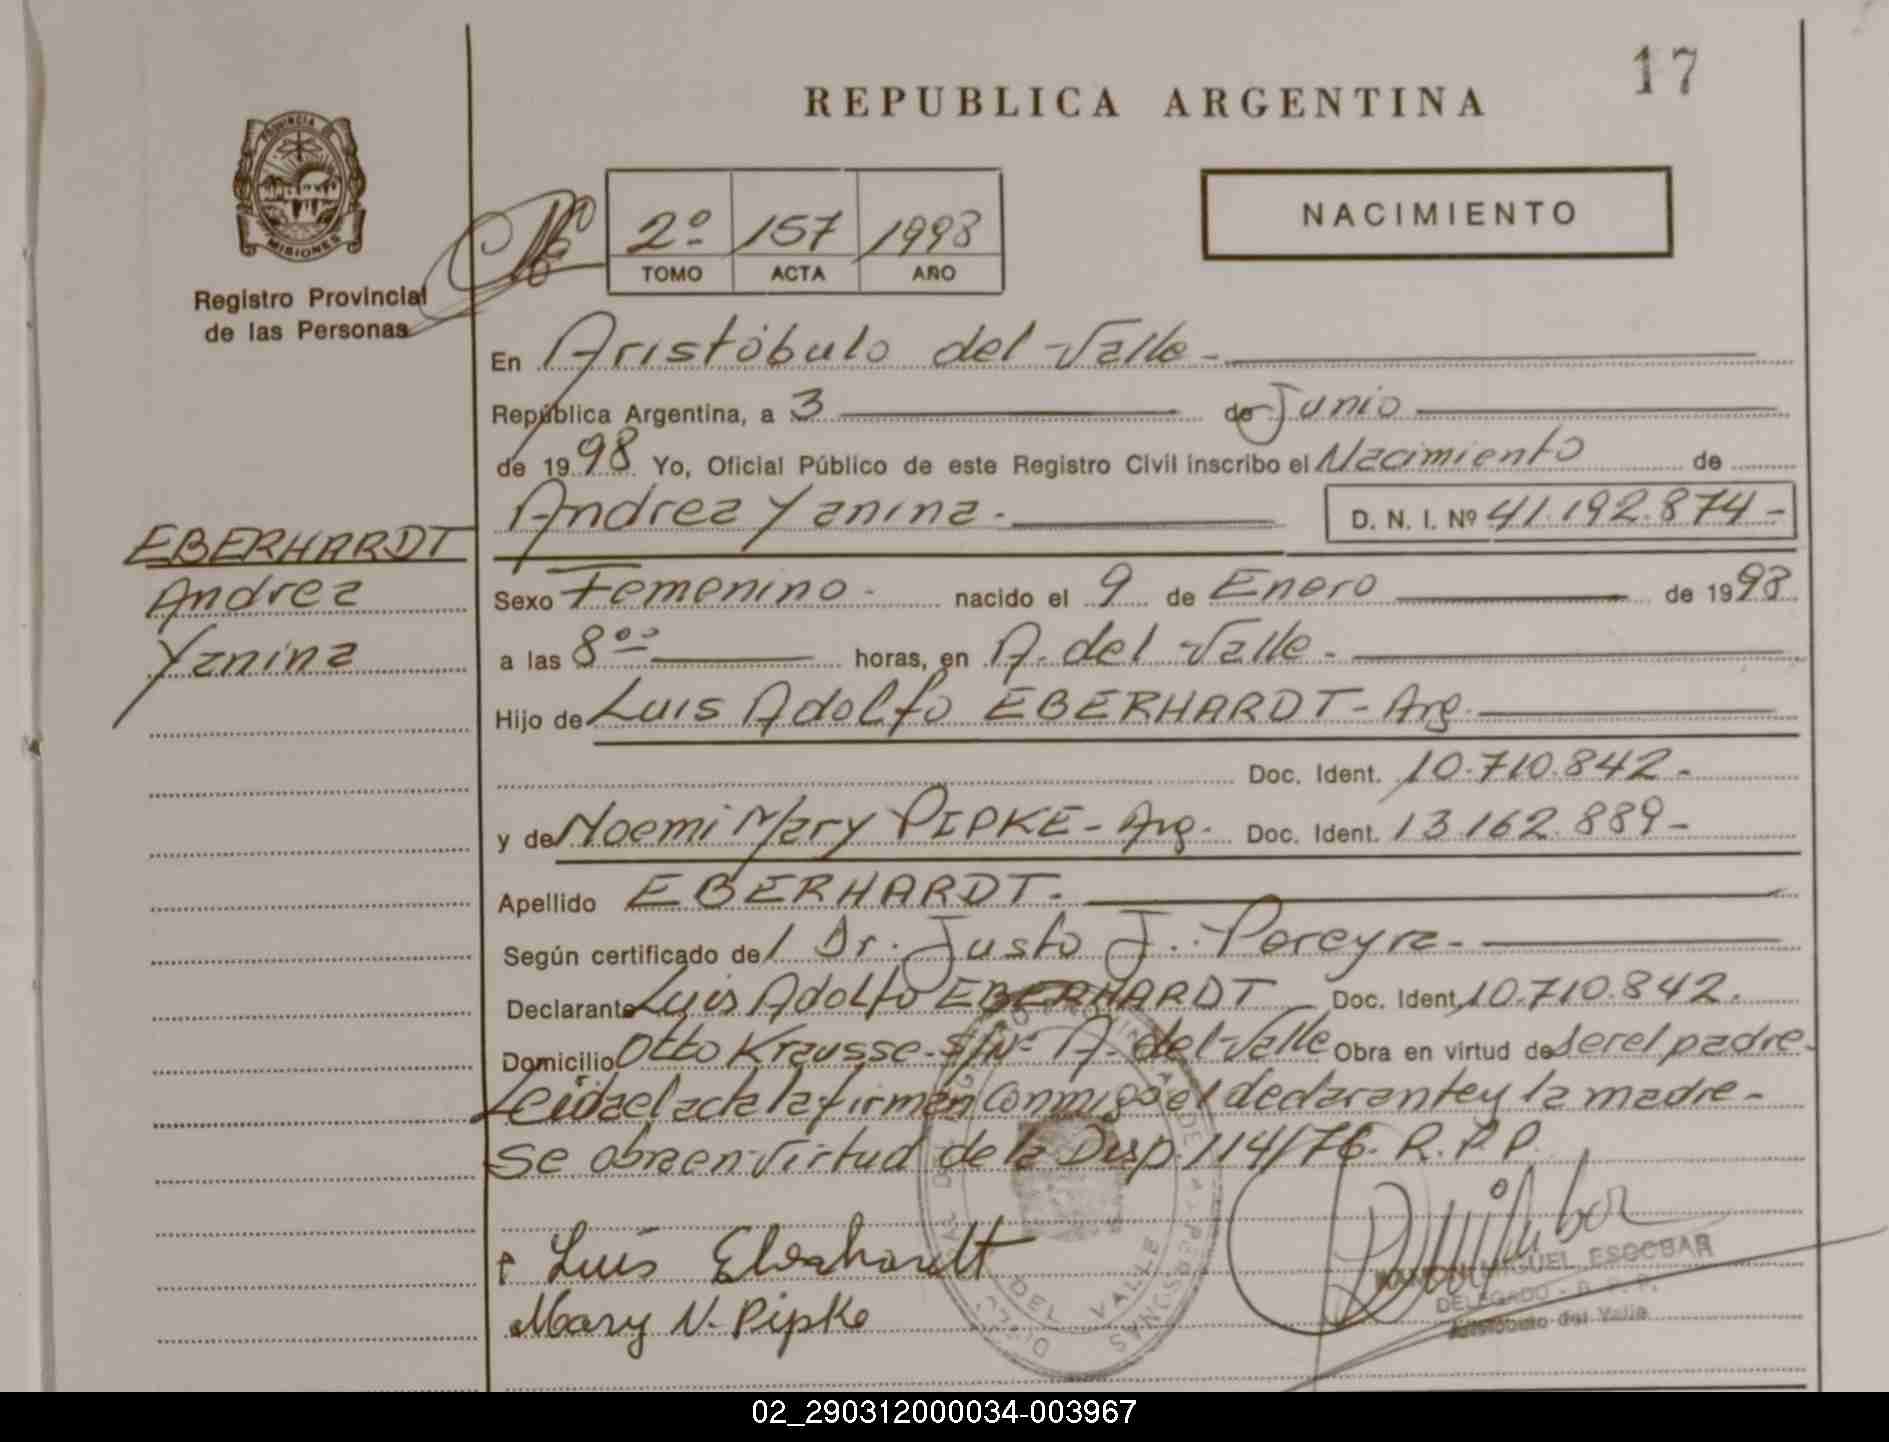 17
REPUBLICA ARGENTINA
PROVINCIA DE
MISIONES
Registro Provincial
de las Personas
2º 157 1998
TOMO ACTA AÑO
NACIMIENTO
En Aristóbulo del Valle-
República Argentina, a 3 de Junio
de 1998 Yo, Oficial Público de este Registro Civil inscribo el Nacimiento de
Andrea Yanina- D. N. I. Nº 41.192.874-
EBERHARDT
Andrea
Yanina
Sexo Femenino- nacido el 9 de Enero de 1998
a las 8ºº horas, en A. del Valle-
Hijo de Luis Adolfo EBERHARDT- Arg.
Doc. Ident. 10.710.842-
y de Noemi Mary PIPKE- Arg. Doc. Ident. 13.162.889-
Apellido EBERHARDT.
Según certificado del Dr. Justo J. Pereyra-
Declarante Luis Adolfo EBERHARDT Doc. Ident. 10.710.842.
Domicilio Otto Krausse- S/Nº A. del Valle Obra en virtud de ser el padre-
Leida el acta la firman conmigo el declarante y la madre-
se obra en virtud de la Disp. 114/76. R.P.P.
Luis Eberhardt
Mary N. Pipke
DEL VALLE
MIGUEL ESCOBAR
DELEGADO - R. P. P.
Aristóbulo del Valle
02_290312000034-003967